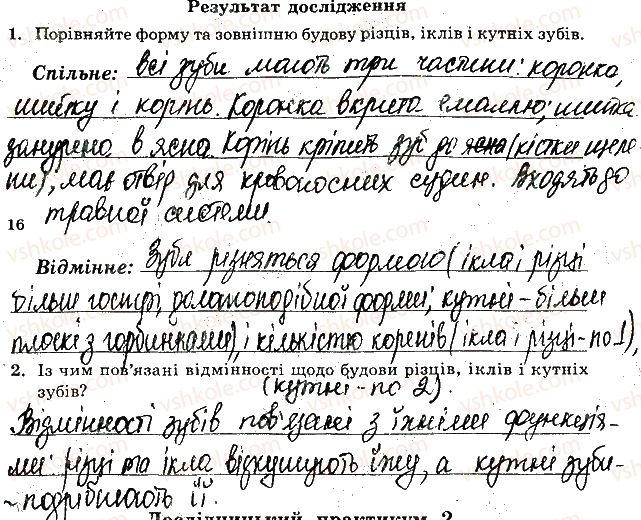 Результат дослідження
1. Порівняйте форму та зовнішню будову різців, іклів і кутніх зубів.
Спільне: всі зуби мають три частини: коронка,
шийку і корінь. Коронка вкрита емаллю; шийка
занурена в ясна. Корінь кріпить зуб до (кістки щеле-
пи), має отвір для кровоносних судин. Входять до
травної системи.
16
Відмінне: Зуби різняться формою (ікла і різці
більш гострі, долотоподібної форми; кутні - більш
плоскі з горбинками), і кількістю коренів (ікла і різці - по 1),
2. Із чим пов'язані відмінності щодо будови різців, іклів і кутніх
зубів? (кутні - по 2).
Відмінності зубів пов'язані з їхніми функція-
ми: різці та ікла відкушують їжу, а кутні зуби
- подрібнюють її.
Дослідницький практикум 2